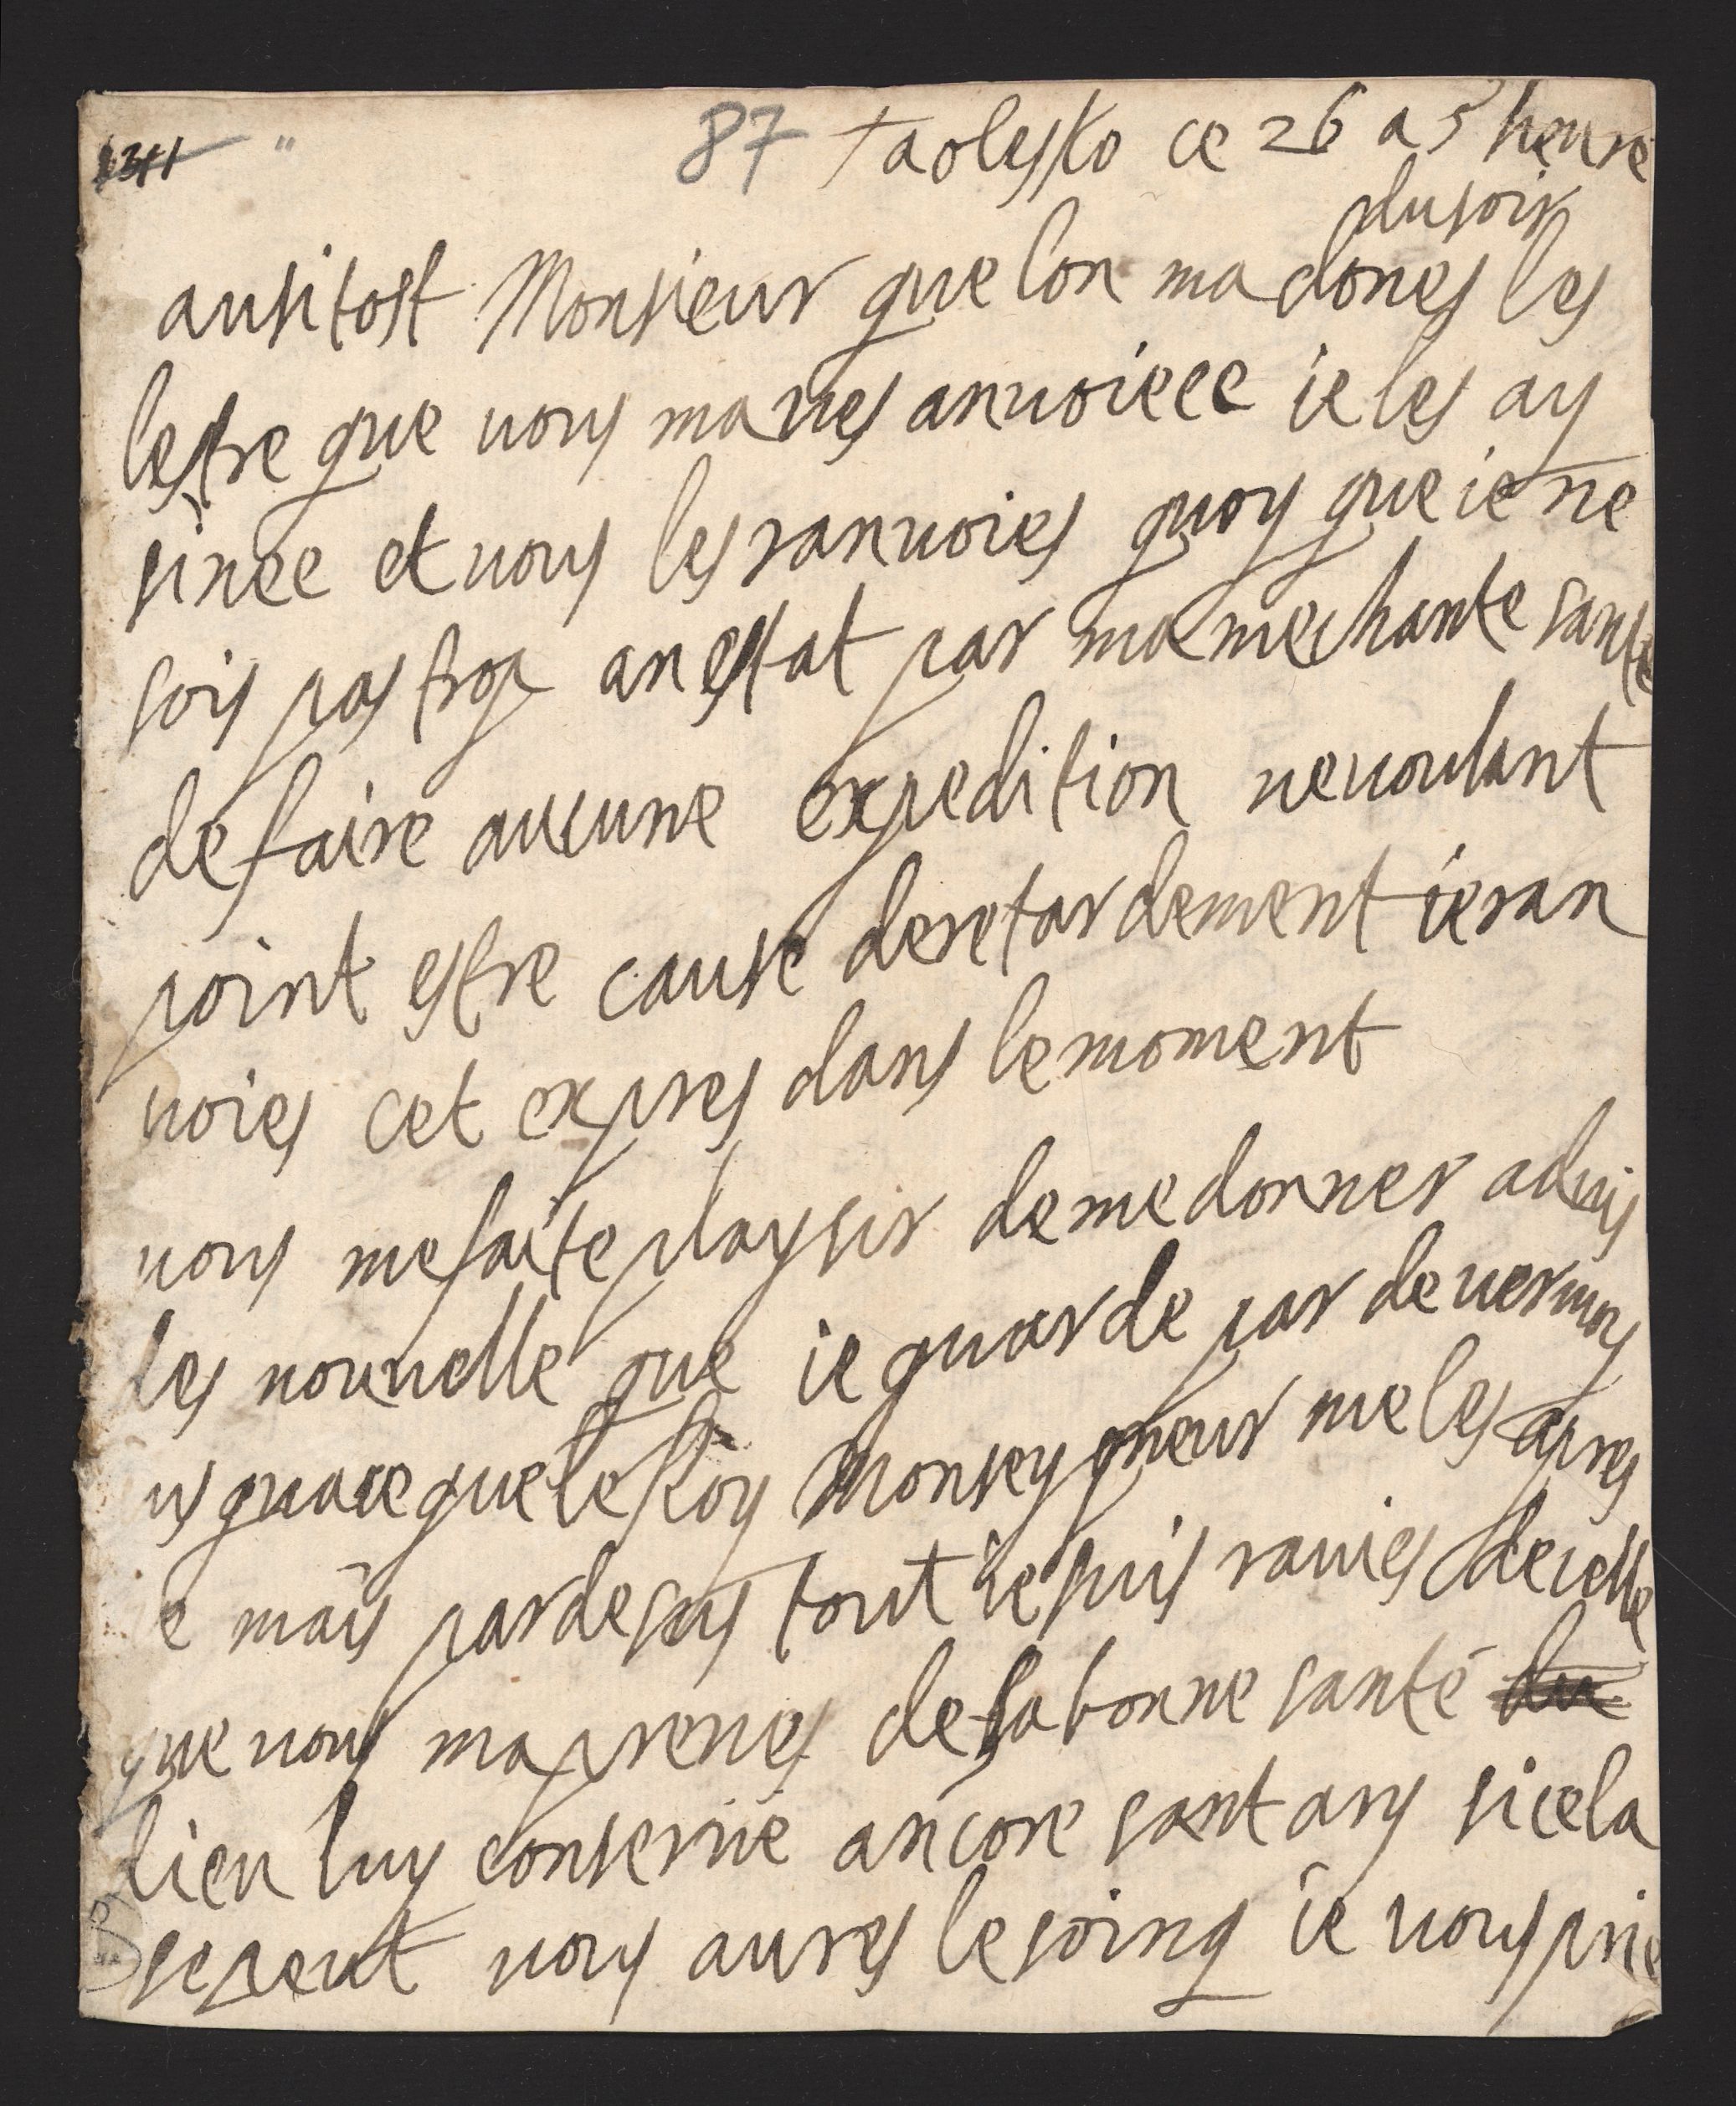 87 a olesko ce 26 a 5 heure
du soir
ausitost Monsieur que lon ma dones les
lestre que vous maves anvoieee ie les ay
sinee et vous les ranvoies quoy que ie ne
sois pas trop an estat par ma mechante sante
de faire aucune expedition ne voulant
point estre cause de retardement ie ran
voies cet expres dans le moment
vous me faite playsir de me donner advis
les nouvelle que ie guarde par de ver moy
us qua ce que le Roy Monseygneur me les apres
e mais par desus tout ie suis ravies de celle
que vous maprenes de sa bonne santé
dieu luy conserve ancore sant ans si cela
se peut vous aures le soing ie vous prie